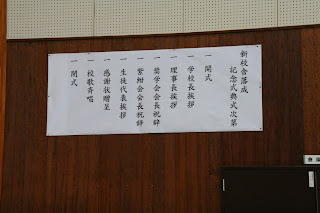 新校舎落成
記念式典式次第
一 開式
一 学校長挨拶
一 理事長挨拶
一 奨学会会長祝辞
一 紫紺会会長祝辞
一 生徒代表挨拶
一 感謝状贈呈
一 校歌斉唱
一 閉式